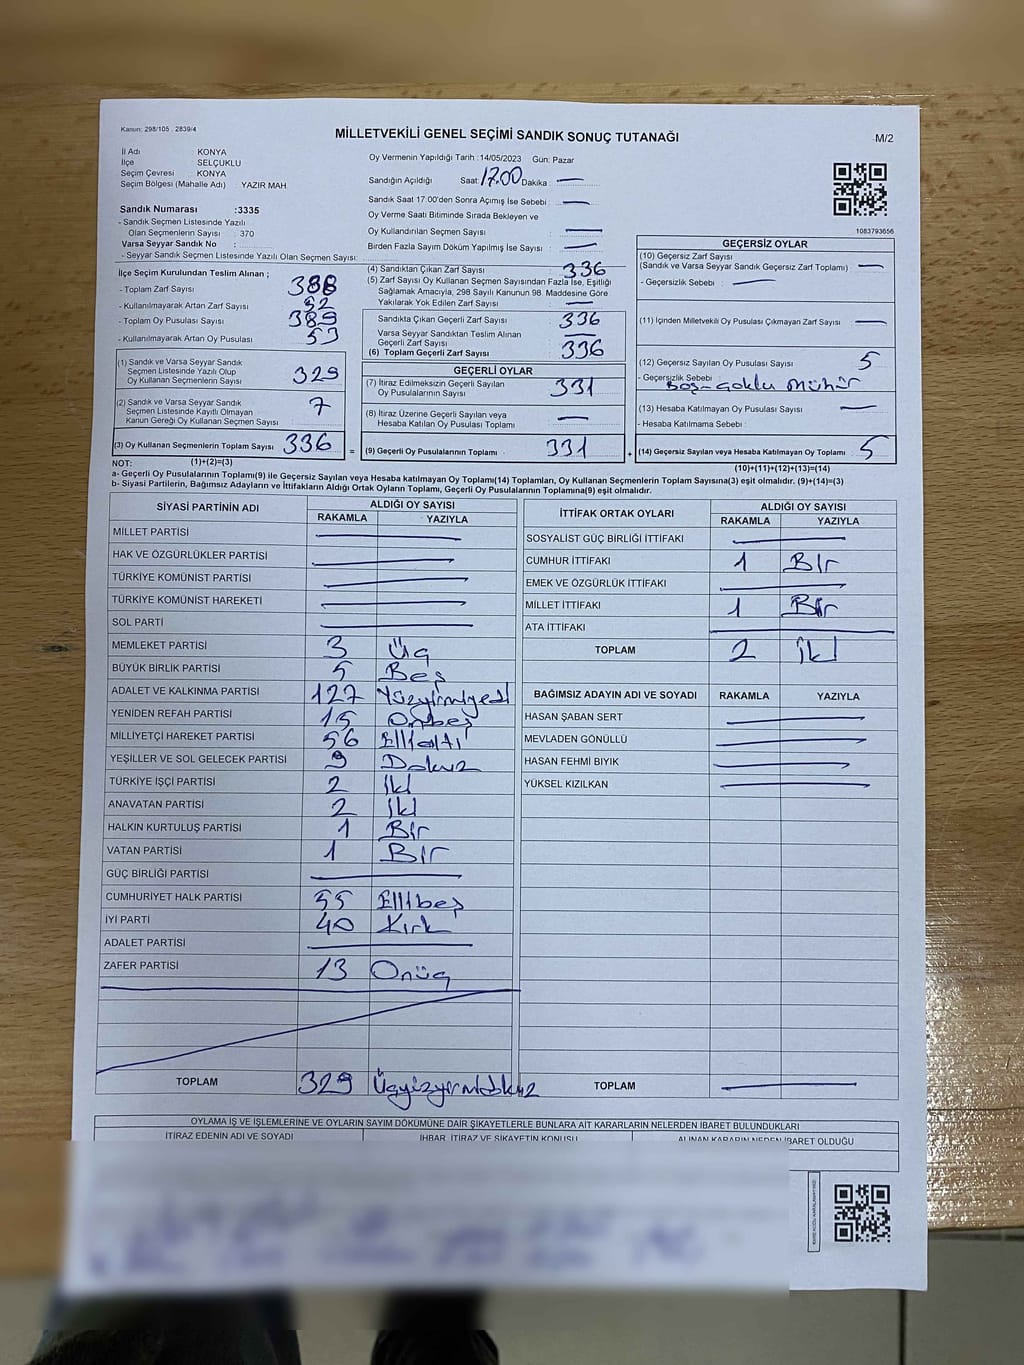 Kanun: 298/105 . 2839/4
MİLLETVEKİLİ GENEL SEÇİMİ SANDIK SONUÇ TUTANAĞI
M/2
İl Adı : KONYA
İlçe : SELÇUKLU
Seçim Çevresi : KONYA
Seçim Bölgesi (Mahalle Adı) YAZIR MAH.
Sandık Numarası :3335
- Sandık Seçmen Listesinde Yazılı
Olan Seçmenlerin Sayısı : 370
Varsa Seyyar Sandık No :
- Seyyar Sandık Seçmen Listesinde Yazılı Olan Seçmen Sayısı:
Oy Vermenin Yapıldığı Tarih :14/05/2023 Gün: Pazar
Sandığın Açıldığı Saat: 17.00 Dakika : —
Sandık Saat 17.00'den Sonra Açımış İse Sebebi : —
Oy Verme Saati Bitiminde Sırada Bekleyen ve
Oy Kullandırılan Seçmen Sayısı : —
Birden Fazla Sayım Döküm Yapılmış İse Sayısı : —
1083793656
İlçe Seçim Kurulundan Teslim Alınan ;
- Toplam Zarf Sayısı : 388
- Kullanılmayarak Artan Zarf Sayısı : 52
- Toplam Oy Pusulası Sayısı : 389
- Kullanılmayarak Artan Oy Pusulası : 53
(1) Sandık ve Varsa Seyyar Sandık
Seçmen Listesinde Yazılı Olup
Oy Kullanan Seçmenlerin Sayısı : 329
(2) Sandık ve Varsa Seyyar Sandık
Seçmen Listesinde Kayıtlı Olmayan
Kanun Gereği Oy Kullanan Seçmen Sayısı : 7
(3) Oy Kullanan Seçmenlerin Toplam Sayısı : 336
(1)+(2)=(3)
(4) Sandıktan Çıkan Zarf Sayısı : 336
(5) Zarf Sayısı Oy Kullanan Seçmen Sayısından Fazla İse, Eşitliği
Sağlamak Amacıyla, 298 Sayılı Kanunun 98. Maddesine Göre
Yakılarak Yok Edilen Zarf Sayısı : —
Sandıkta Çıkan Geçerli Zarf Sayısı : 336
Varsa Seyyar Sandıktan Teslim Alınan
Geçerli Zarf Sayısı : —
(6) Toplam Geçerli Zarf Sayısı : 336
GEÇERLİ OYLAR
(7) İtiraz Edilmeksizin Geçerli Sayılan
Oy Pusulalarının Sayısı : 331
(8) İtiraz Üzerine Geçerli Sayılan veya
Hesaba Katılan Oy Pusulası Toplamı : —
= (9) Geçerli Oy Pusulalarının Toplamı : 331
GEÇERSİZ OYLAR
(10) Geçersiz Zarf Sayısı
(Sandık ve Varsa Seyyar Sandık Geçersiz Zarf Toplamı) : —
- Geçersizlik Sebebi : —
(11) İçinden Milletvekili Oy Pusulası Çıkmayan Zarf Sayısı : —
(12) Geçersiz Sayılan Oy Pusulası Sayısı : 5
- Geçersizlik Sebebi : Boş-Çoklu Mühür
(13) Hesaba Katılmayan Oy Pusulası Sayısı : —
- Hesaba Katılmama Sebebi :
+ (14) Geçersiz Sayılan veya Hesaba Katılmayan Oy Toplamı : 5
(10)+(11)+(12)+(13)=(14)
NOT:
a- Geçerli Oy Pusulalarının Toplamı(9) ile Geçersiz Sayılan veya Hesaba katılmayan Oy Toplamı(14) Toplamları, Oy Kullanan Seçmenlerin Toplam Sayısına(3) eşit olmalıdır. (9)+(14)=(3)
b- Siyasi Partilerin, Bağımsız Adayların ve İttifakların Aldığı Ortak Oyların Toplamı, Geçerli Oy Pusulalarının Toplamına(9) eşit olmalıdır.
SİYASİ PARTİNİN ADI ALDIĞI OY SAYISI
RAKAMLA YAZIYLA
MİLLET PARTİSİ —
HAK VE ÖZGÜRLÜKLER PARTİSİ —
TÜRKİYE KOMÜNİST PARTİSİ —
TÜRKİYE KOMÜNİST HAREKETİ —
SOL PARTİ —
MEMLEKET PARTİSİ 3 Üç
BÜYÜK BİRLİK PARTİSİ 5 Beş
ADALET VE KALKINMA PARTİSİ 127 Yüzyirmiyedi
YENİDEN REFAH PARTİSİ 15 Onbeş
MİLLİYETÇİ HAREKET PARTİSİ 56 Ellialtı
YEŞİLLER VE SOL GELECEK PARTİSİ 9 Dokuz
TÜRKİYE İŞÇİ PARTİSİ 2 İki
ANAVATAN PARTİSİ 2 İki
HALKIN KURTULUŞ PARTİSİ 1 Bir
VATAN PARTİSİ 1 Bir
GÜÇ BİRLİĞİ PARTİSİ —
CUMHURİYET HALK PARTİSİ 55 Ellibeş
İYİ PARTİ 40 Kırk
ADALET PARTİSİ —
ZAFER PARTİSİ 13 Onüç
TOPLAM 329 Üçyüzyirmidokuz
İTTİFAK ORTAK OYLARI ALDIĞI OY SAYISI
RAKAMLA YAZIYLA
SOSYALİST GÜÇ BİRLİĞİ İTTİFAKI —
CUMHUR İTTİFAKI 1 Bir
EMEK VE ÖZGÜRLÜK İTTİFAKI —
MİLLET İTTİFAKI 1 Bir
ATA İTTİFAKI —
TOPLAM 2 İki
BAĞIMSIZ ADAYIN ADI VE SOYADI RAKAMLA YAZIYLA
HASAN ŞABAN SERT —
MEVLADEN GÖNÜLLÜ —
HASAN FEHMİ BIYIK —
YÜKSEL KIZILKAN —
TOPLAM —
OYLAMA İŞ VE İŞLEMLERİNE VE OYLARIN SAYIM DÖKÜMÜNE DAİR ŞİKAYETLERLE BUNLARA AİT KARARLARIN NELERDEN İBARET BULUNDUKLARI
İTİRAZ EDENİN ADI VE SOYADI İHBAR, İTİRAZ VE ŞİKAYETİN KONUSU ALINAN KARARIN NEDEN İBARET OLDUĞU